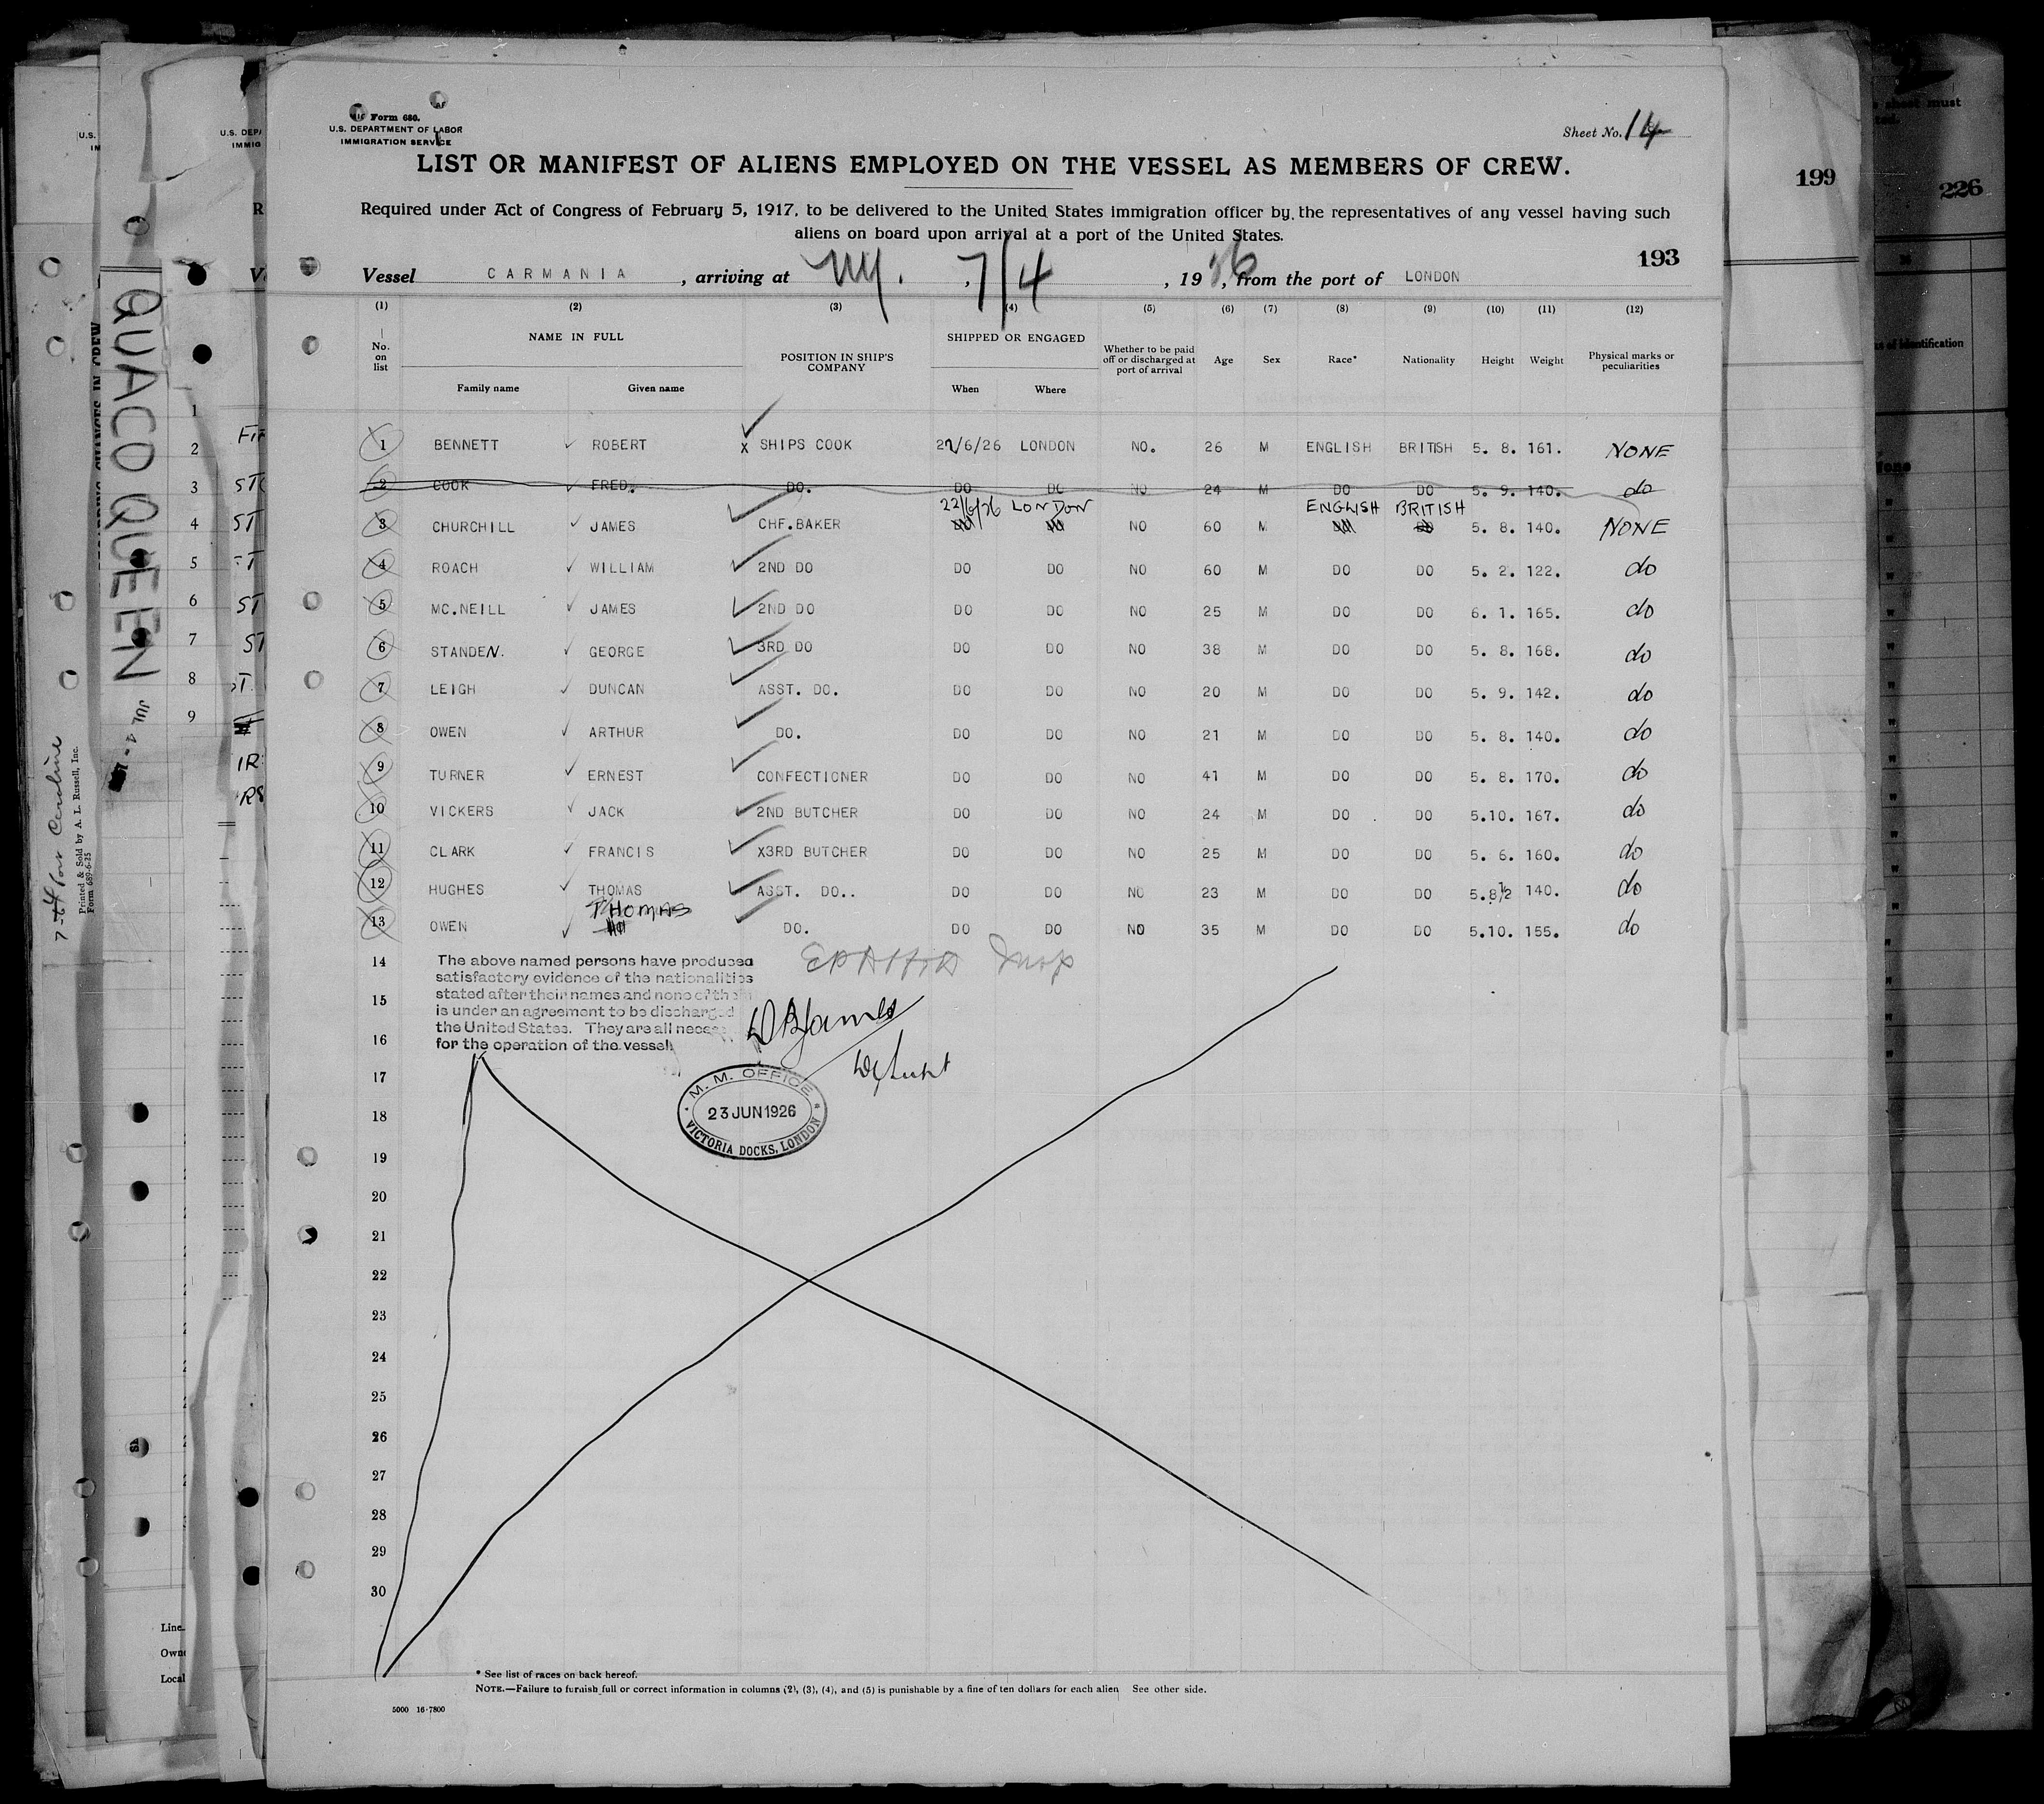 Form 680.
U.S. DEPARTMENT OF LABOR
IMMIGRATION SERVICE
Sheet No. 14
LIST OR MANIFEST OF ALIENS EMPLOYED ON THE VESSEL AS MEMBERS OF CREW.
Required under Act of Congress of February 5, 1917, to be delivered to the United States immigration officer by the representatives of any vessel having such
aliens on board upon arrival at a port of the United States.
193
Vessel CARMANIA, arriving at N.Y., 7/4, 1926, from the port of LONDON
(1) (2) (3) (4) (5) (6) (7) (8) (9) (10) (11) (12)
No. on list NAME IN FULL Family name Given name POSITION IN SHIP'S COMPANY SHIPPED OR ENGAGED When Where Whether to be paid off or discharged at port of arrival Age Sex Race* Nationality Height Weight Physical marks or peculiarities
1 BENNETT ROBERT X SHIPS COOK 22/6/26 LONDON NO. 26 M ENGLISH BRITISH 5. 8. 161. NONE
2 COOK FRED. DO. DO DO NO 24 M DO DO 5. 9. 140. do
3 CHURCHILL JAMES CHF.BAKER 22/6/26 LONDON NO 60 M ENGLISH BRITISH 5. 8. 140. NONE
4 ROACH WILLIAM 2ND DO DO DO NO 60 M DO DO 5. 2. 122. do
5 MC.NEILL JAMES 2ND DO DO DO NO 25 M DO DO 6. 1. 165. do
6 STANDEN. GEORGE 3RD DO DO DO NO 38 M DO DO 5. 8. 168. do
7 LEIGH DUNCAN ASST. DO. DO DO NO 20 M DO DO 5. 9. 142. do
8 OWEN ARTHUR DO. DO DO NO 21 M DO DO 5. 8. 140. do
9 TURNER ERNEST CONFECTIONER DO DO NO 41 M DO DO 5. 8. 170. do
10 VICKERS JACK 2ND BUTCHER DO DO NO 24 M DO DO 5.10. 167. do
11 CLARK FRANCIS X3RD BUTCHER DO DO NO 25 M DO DO 5. 6. 160. do
12 HUGHES THOMAS ASST. DO.. DO DO NO 23 M DO DO 5.8½ 140. do
13 OWEN THOMAS DO. DO DO NO 35 M DO DO 5.10. 155. do
14
The above named persons have produced
satisfactory evidence of the nationalities
stated after their names and none of them
15
is under an agreement to be discharged
the United States. They are all neces
16
for the operation of the vessel.
17
M. M. OFFICE
23 JUN 1926
VICTORIA DOCKS, LONDON
18
19
20
21
22
23
24
25
26
27
28
29
30
* See list of races on back hereof.
NOTE.—Failure to furnish full or correct information in columns (2), (3), (4), and (5) is punishable by a fine of ten dollars for each alien See other side.
5000 16-7800
QUACO QUEEN
Printed & Sold by A. L. Russell, Inc.
Form 689-6-25
1
2
3
4
5
6
7
8
9
Line
Local
199
226